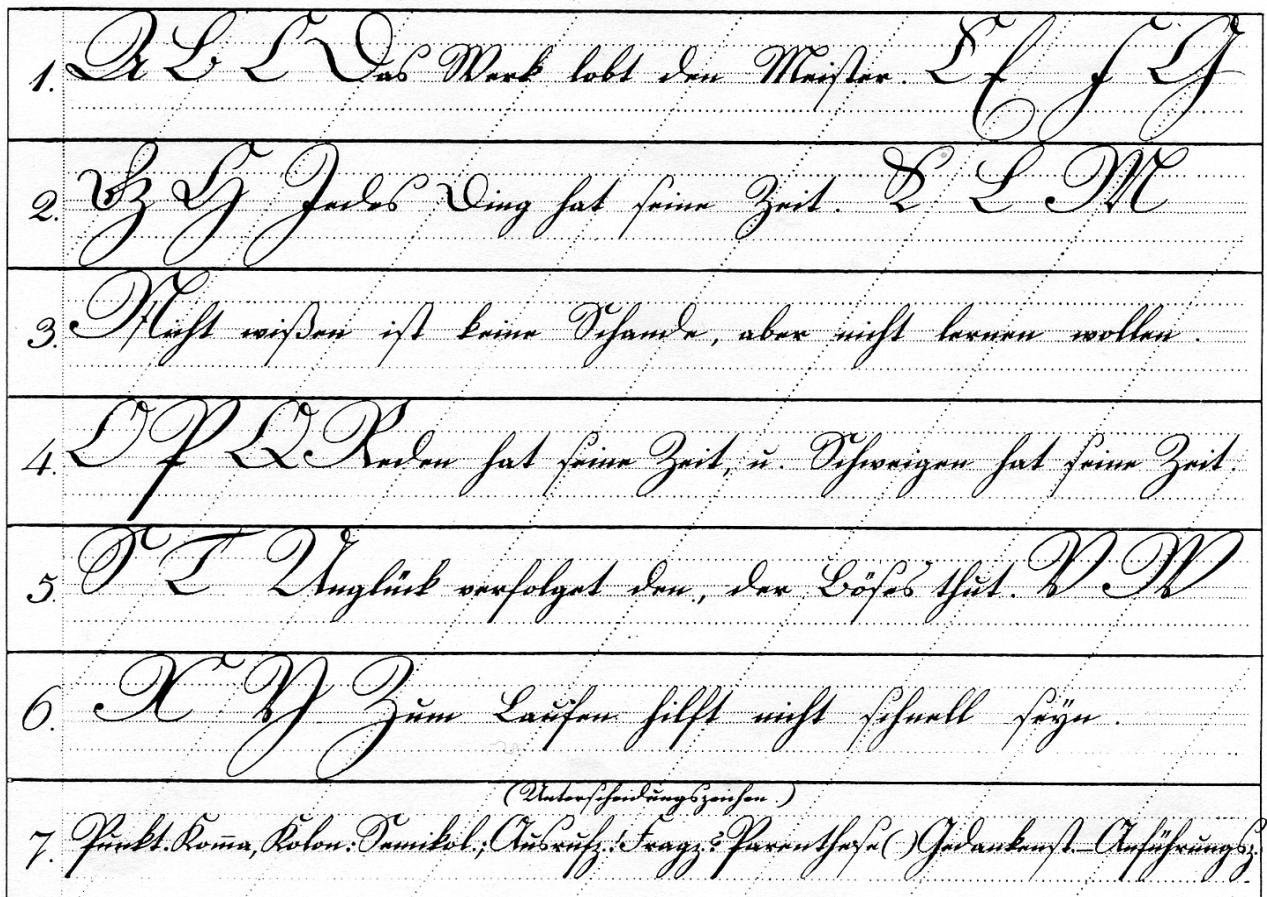 1. A B C Das Werk lobt den Meister. E F G
2. H H Jedes Ding hat seine Zeit. K L M
3. Nicht wißen ist keine Schande, aber nicht lernen wollen.
4. O P Q Reden hat seine Zeit, u. Schweigen hat seine Zeit.
5. S T Unglück verfolget den, der Böses thut. V W
6. X Y Zum Laufen hilft nicht schnell seyn.
(Unterscheidungszeichen)
7. Punkt. Kom̅a, Kolon: Semikol.; Ausrufz.! Fragz.? Parenthese ( ) Gedankenst.— Anführungsz.